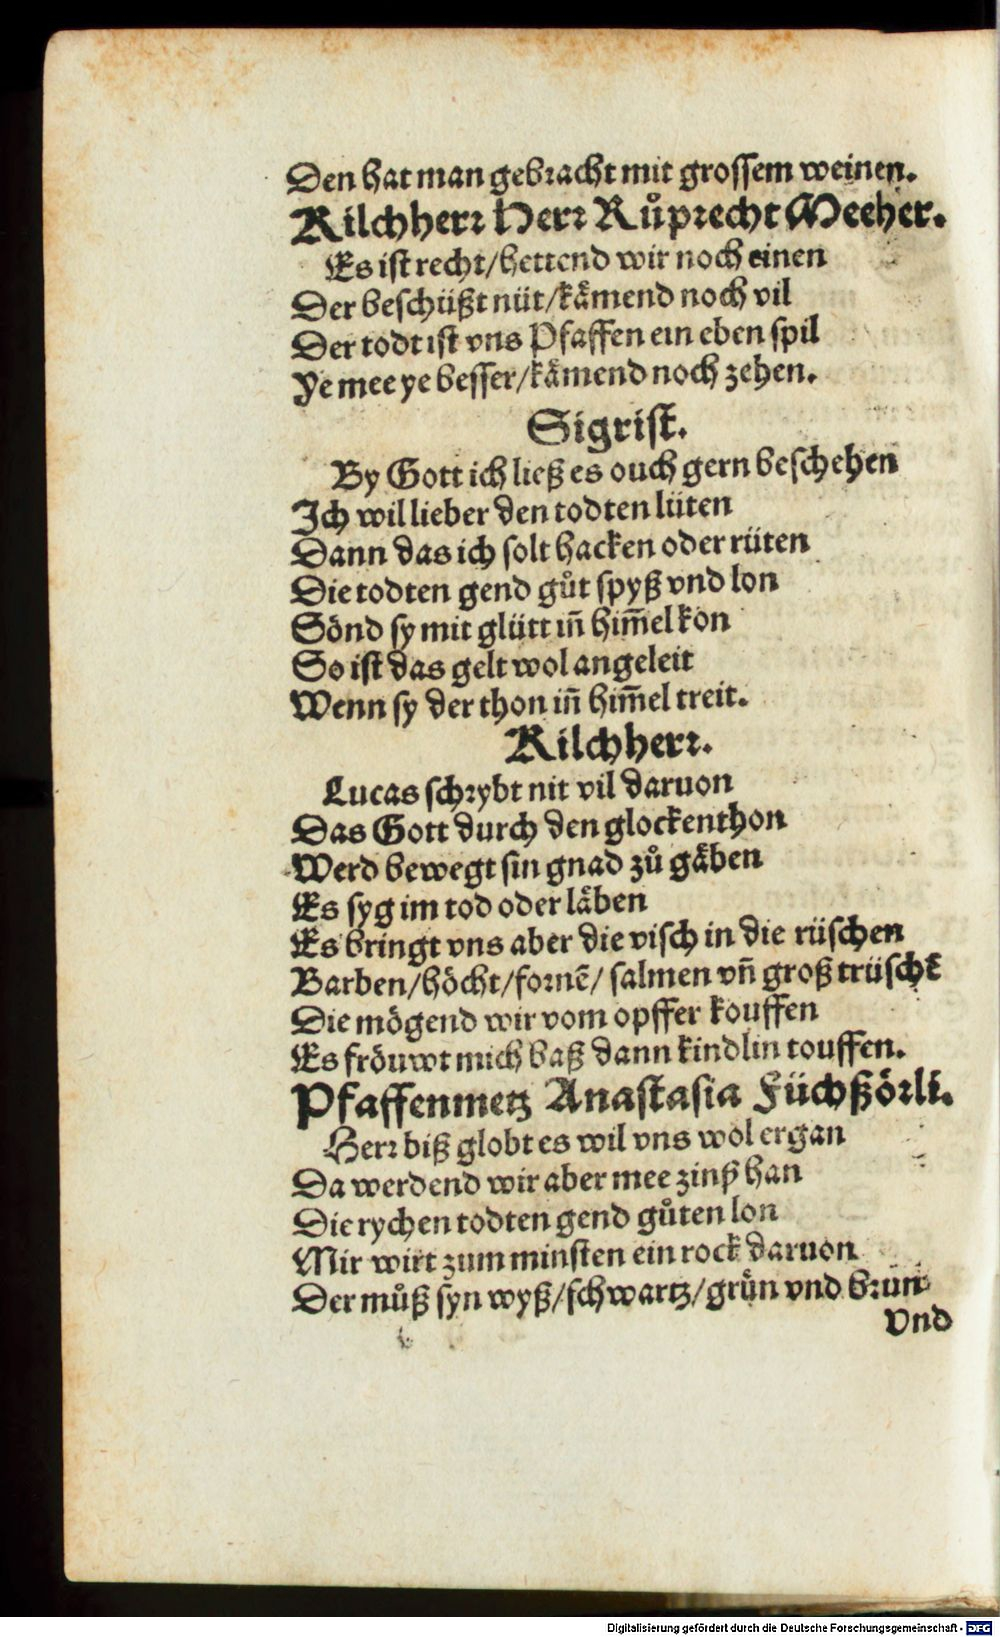 Den hat man gebracht mit grossem weinen.
Kilchherr Herr Růprecht Meeher.
Es ist recht/hettend wir noch einen
Der beschüßt nüt/kämend noch vil
Der todt ist vns Pfaffen ein eben spil
Ye mee ye besser/kämend noch zehen.
Sigrist.
By Gott ich ließ es ouch gern beschehen
Ich wil lieber den todten lüten
Dann das ich solt hacken oder rüten
Die todten gend gůt spyß vnd lon
Sönd sy mit glütt in̄ him̄el kon
So ist das gelt wol angeleit
Wenn sy der thon in̄ him̄el treit.
Kilchherr.
Lucas schrybt nit vil daruon
Das Gott durch den glockenthon
Werd bewegt sin gnad zů gäben
Es syg im tod oder läben
Es bringt vns aber die visch in die rüschen
Barben/höcht/fornē/ salmen vn̄ groß trüschē
Die mögend wir vom opffer kouffen
Es fröuwt mich baß dann kindlin touffen.
Pfaffenmetz Anastasia Füchßörli.
Herr biß globt es wil vns wol ergan
Da werdend wir aber mee zinß han
Die rychen todten gend gůten lon
Mir wirt zum minsten ein rock daruon
Der můß syn wyß/schwartz/grün vnd brun
Vnd
Digitalisierung gefördert durch die Deutsche Forschungsgemeinschaft - DFG